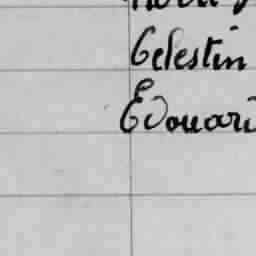 Celestin
Edouard